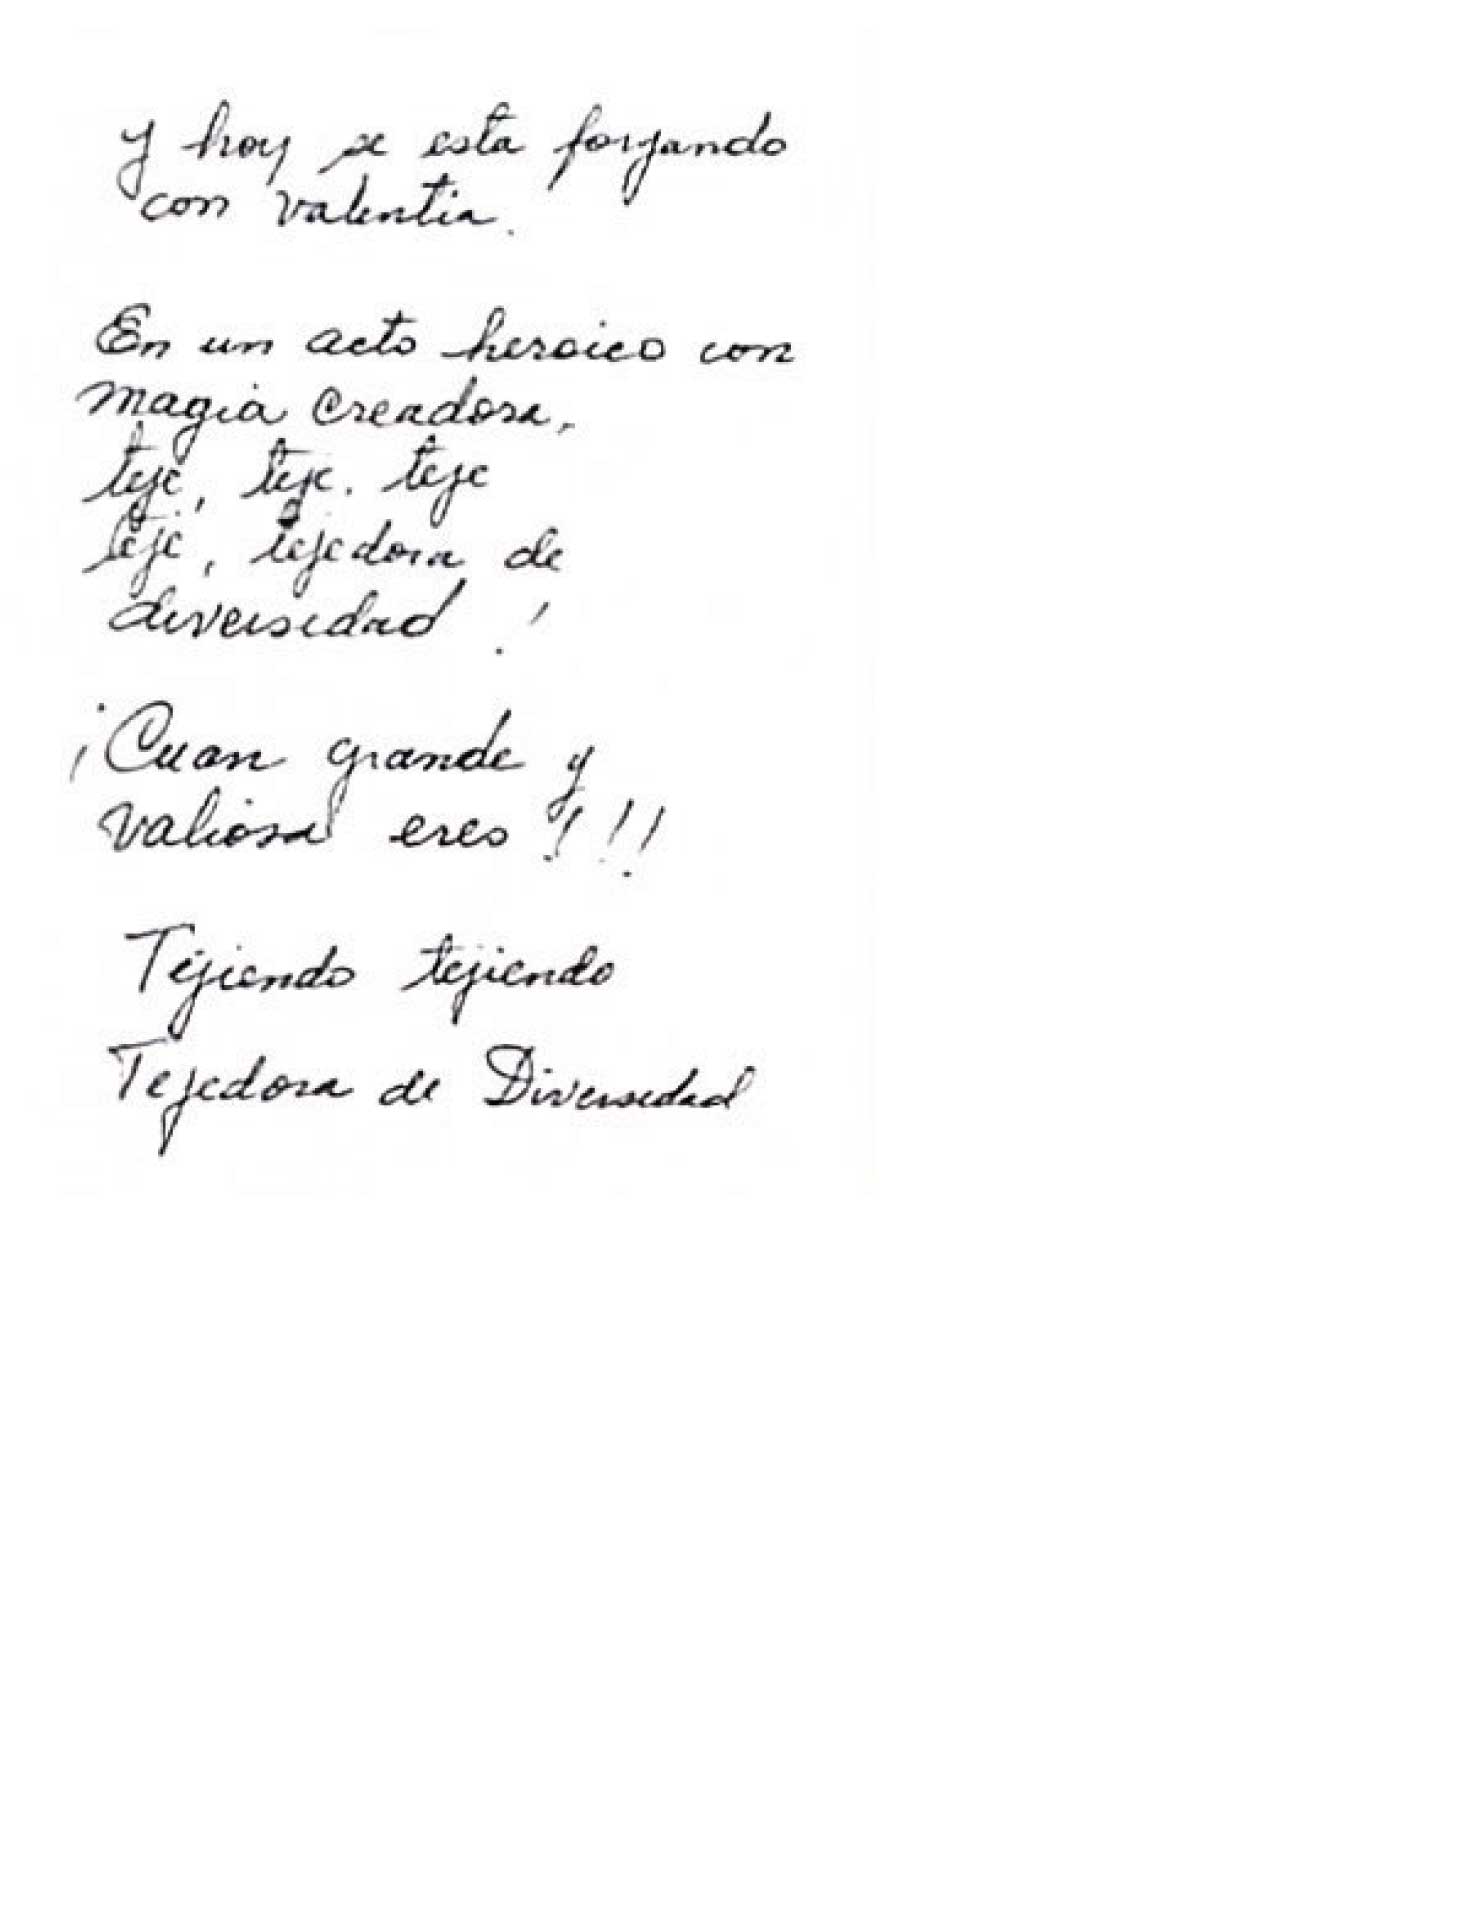 y hoy se esta forjando
con valentia.
En un acto heroico con
magia creadora,
teje, teje. teje
teje, tejedora de
diversedad !
¡Cuan grande y
valiosa eres !!!
Tejiendo tejiendo
Tejedora de Diversedad